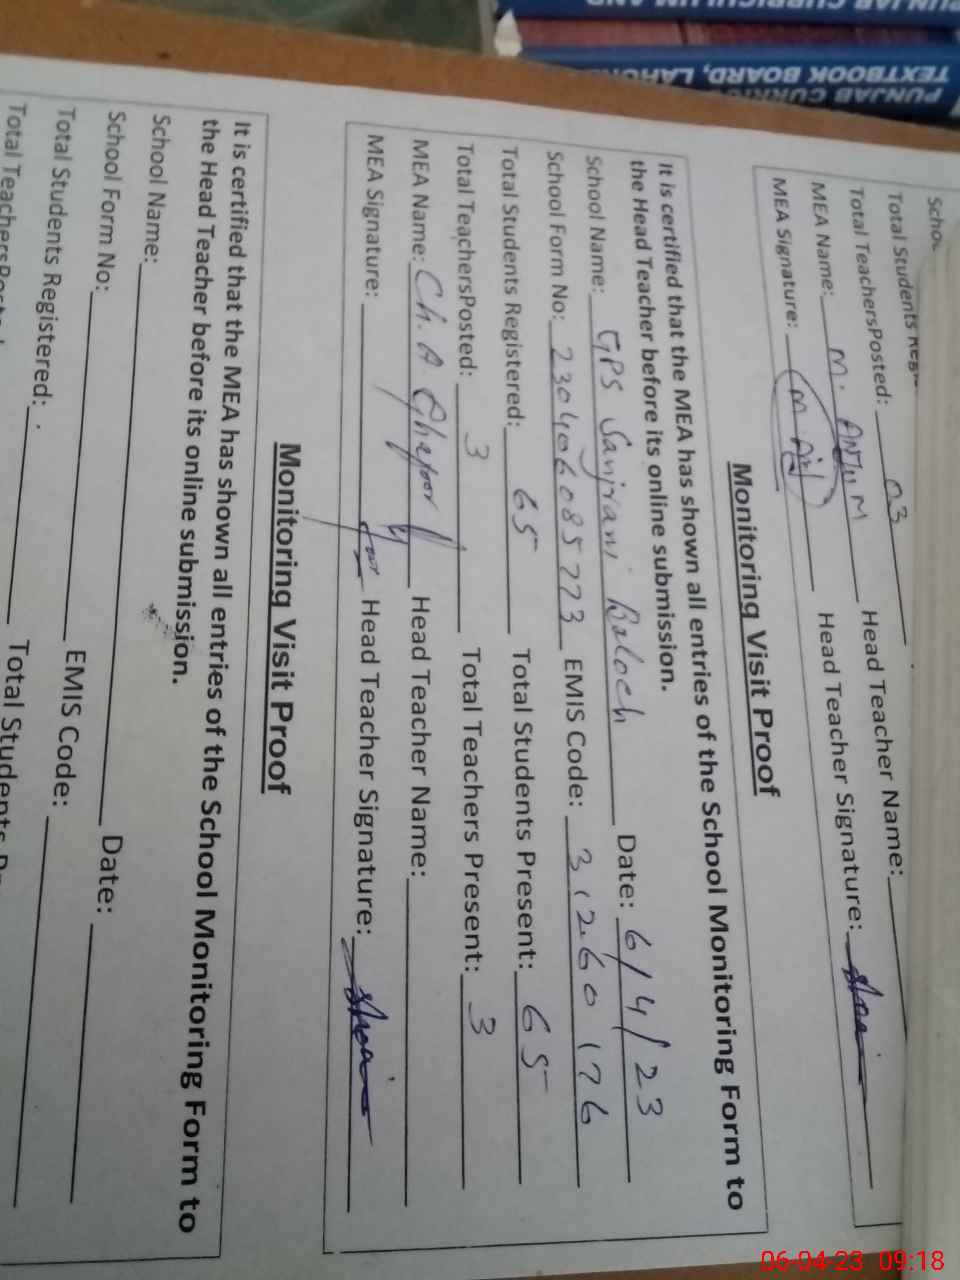 PUNJAB CURRIC
TEXTBOOK BOARD, LAHO
Total Students
Total TeachersPosted: 03
MEA Name: M. ANJUM Head Teacher Name:
MEA Signature: Head Teacher Signature:
Monitoring Visit Proof
It is certified that the MEA has shown all entries of the School Monitoring Form to
the Head Teacher before its online submission.
School Name: GPS Sanjrani Baloch Date: 6/4/23
School Form No: 230406085773 EMIS Code: 31260176
Total Students Registered: 65 Total Students Present: 65
Total TeachersPosted: 3 Total Teachers Present: 3
MEA Name: Ch. A Ghafoor Head Teacher Name:
MEA Signature: Head Teacher Signature:
Monitoring Visit Proof
It is certified that the MEA has shown all entries of the School Monitoring Form to
the Head Teacher before its online submission.
School Name: Date:
School Form No: EMIS Code:
Total Students Registered: Total Students
Total Teachers
06-04-23 09:18